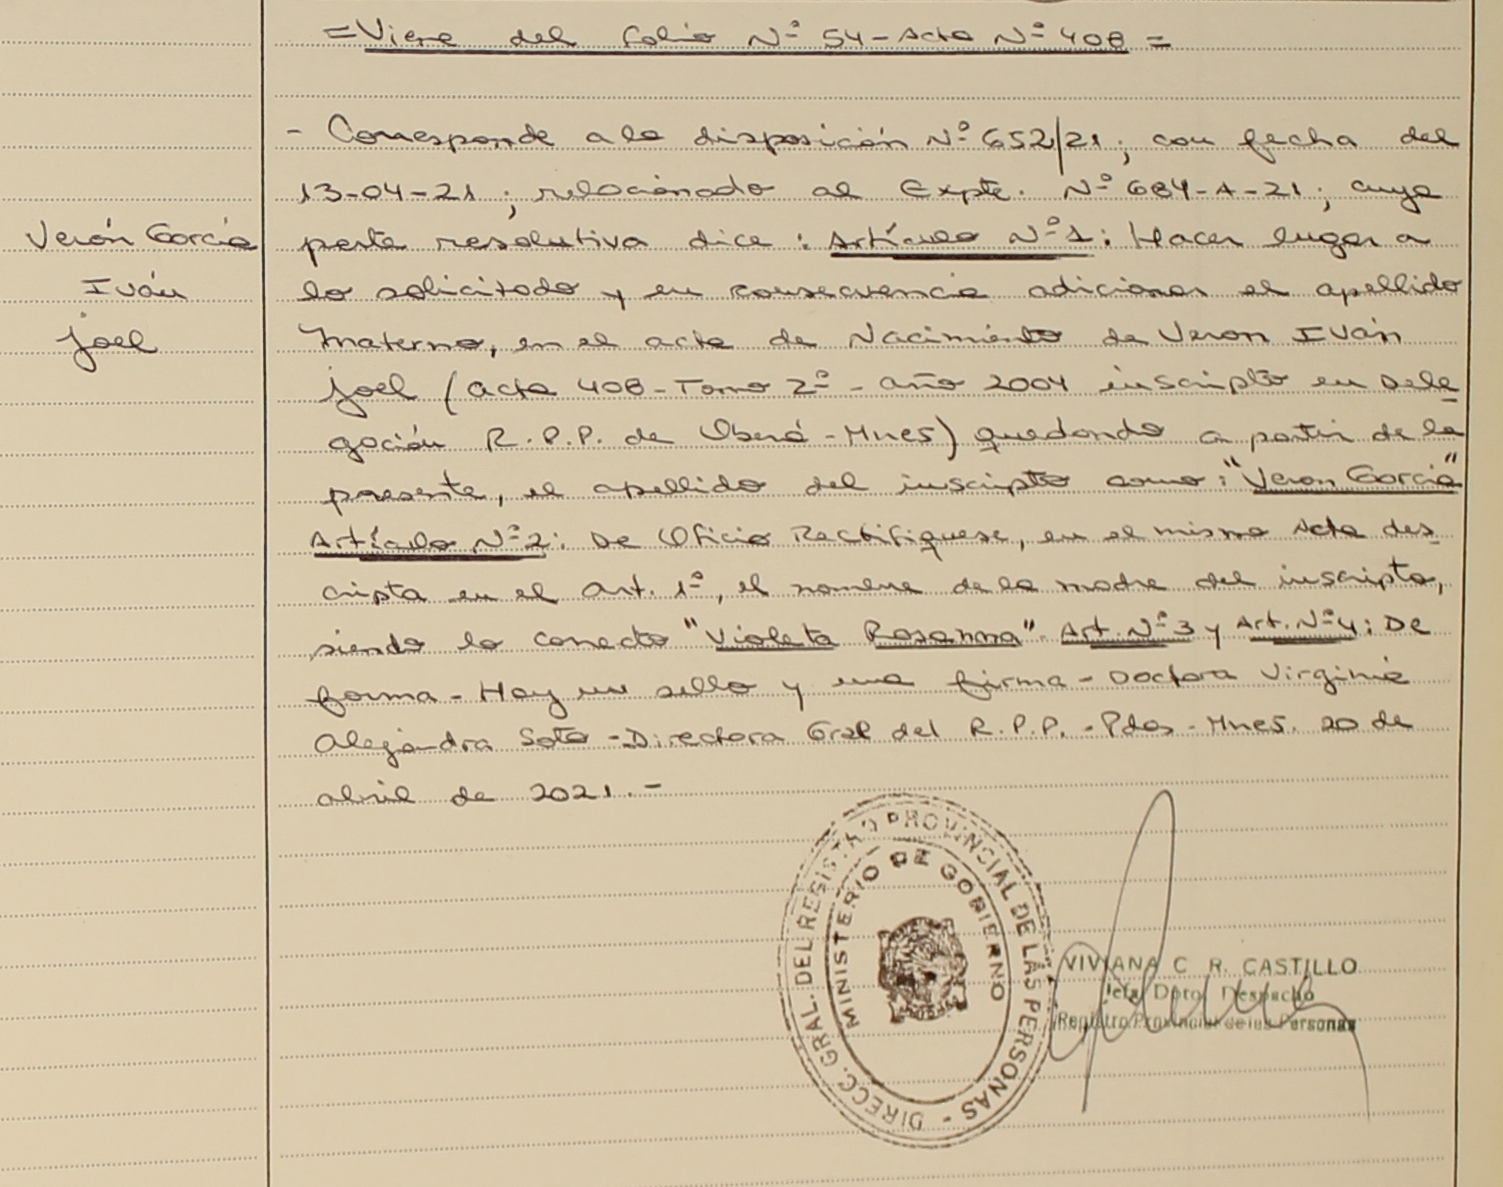 = Viene del folio Nº 54 - Acta Nº 408 =
- Corresponde a la disposición Nº 652/21; con fecha del
13-04-21; relacionado al Expte. Nº 684-A-21; cuya
Verón García
parte resolutiva dice: Artículo Nº 1: Hacer lugar a
Iván
lo solicitado y en consecuencia adicionar el apellido
Joel
Materno, en el acta de Nacimiento de Veron Iván
Joel (acta 408 - Tomo 2º - año 2004 inscripto en Dele
gación R.P.P. de Oberá - Mnes) quedando a partir de la
presente, el apellido del inscripto como: "Veron García"
Artículo Nº 2: De Oficio Rectifiquese, en el mismo Acta des
cripta en el Art. 1º, el nombre de la madre del inscripto,
siendo lo correcto "Violeta Rosanna". Art. Nº 3 y Art. Nº 4: De
forma - Hay un sello y una firma - Doctora Virginia
Alejandra Soto - Directora Gral del R.P.P. - Pdas - Mnes. 20 de
abril de 2021.-
DIRECC. GRAL. DEL REGISTRO PROVINCIAL DE LAS PERSONAS -
MINISTERIO DE GOBIERNO
VIVIANA C R. CASTILLO
Jefa Dpto. Despacho
Registro Provincial de las Personas